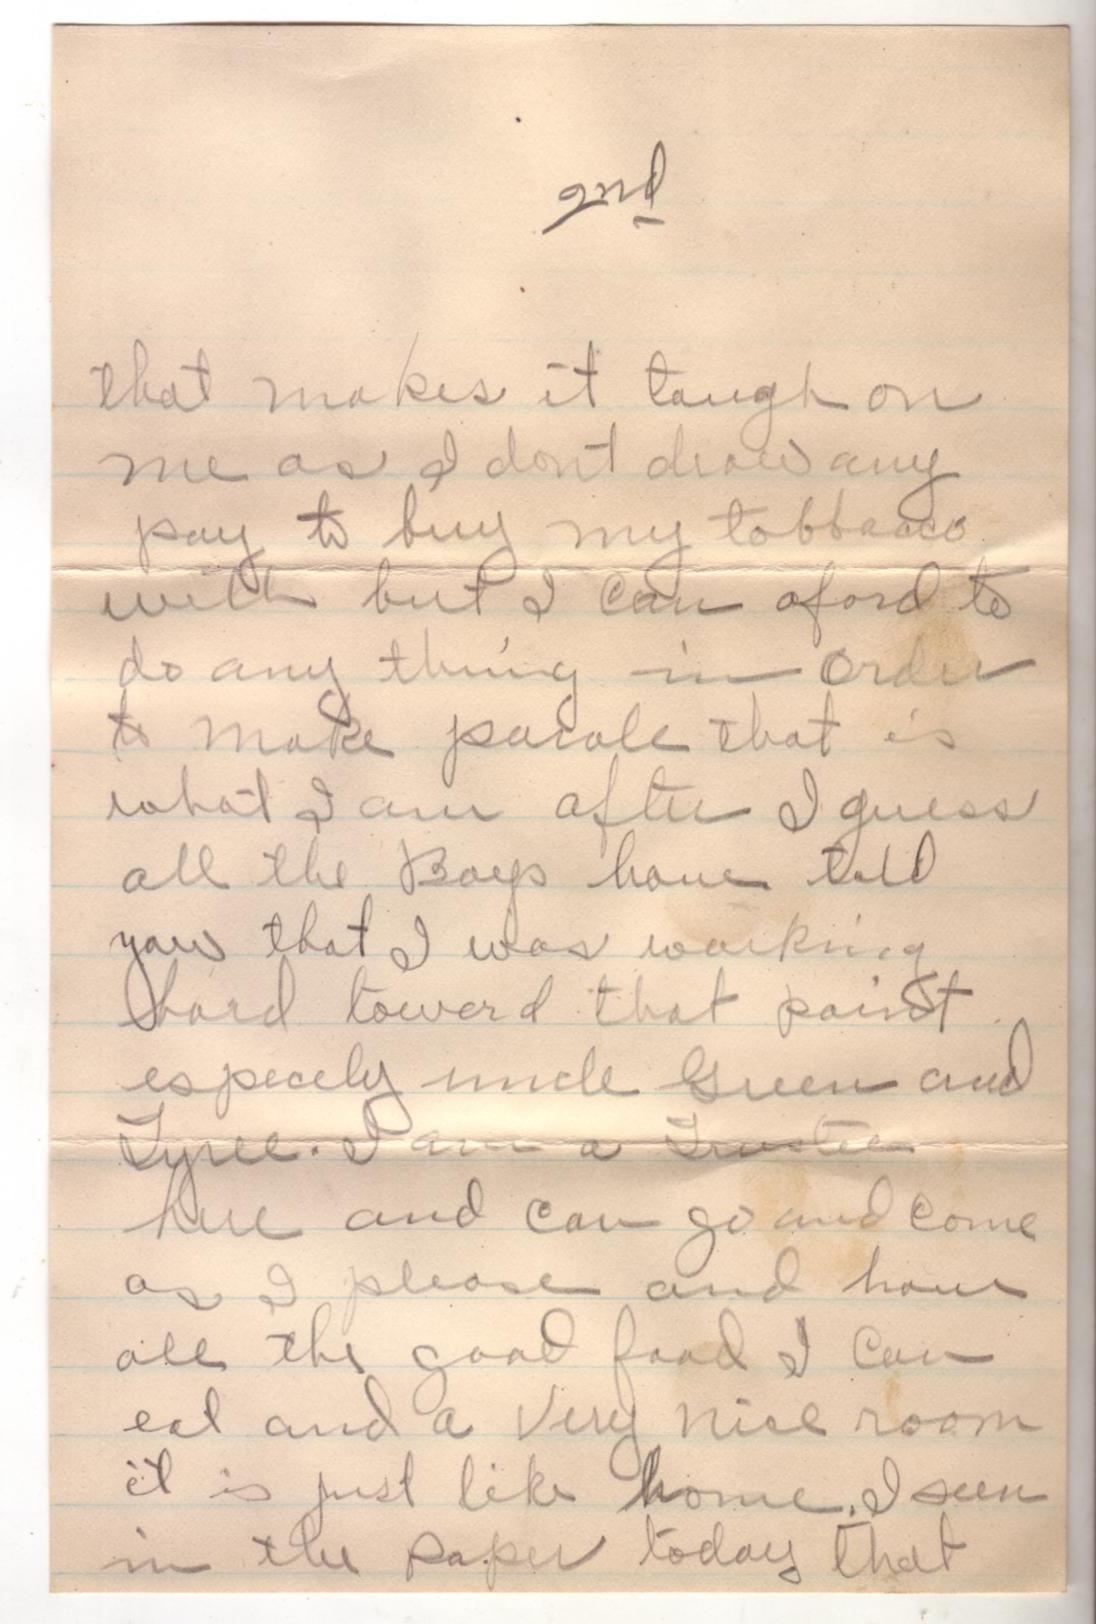 2nd
that makes it tough on
me as I dont draw any
pay to buy my tobbacco
with but I can aford to
do any thing in order
to make parole that is
what I am after I guess
all the Boys have told
you that I was working
hard toward that point
especely uncle Green and
Tyree. I am a Trustee
here and can go and come
as I please and have
all the good food I can
eat and a very nice room
it is just like home. I seen
in the paper today that